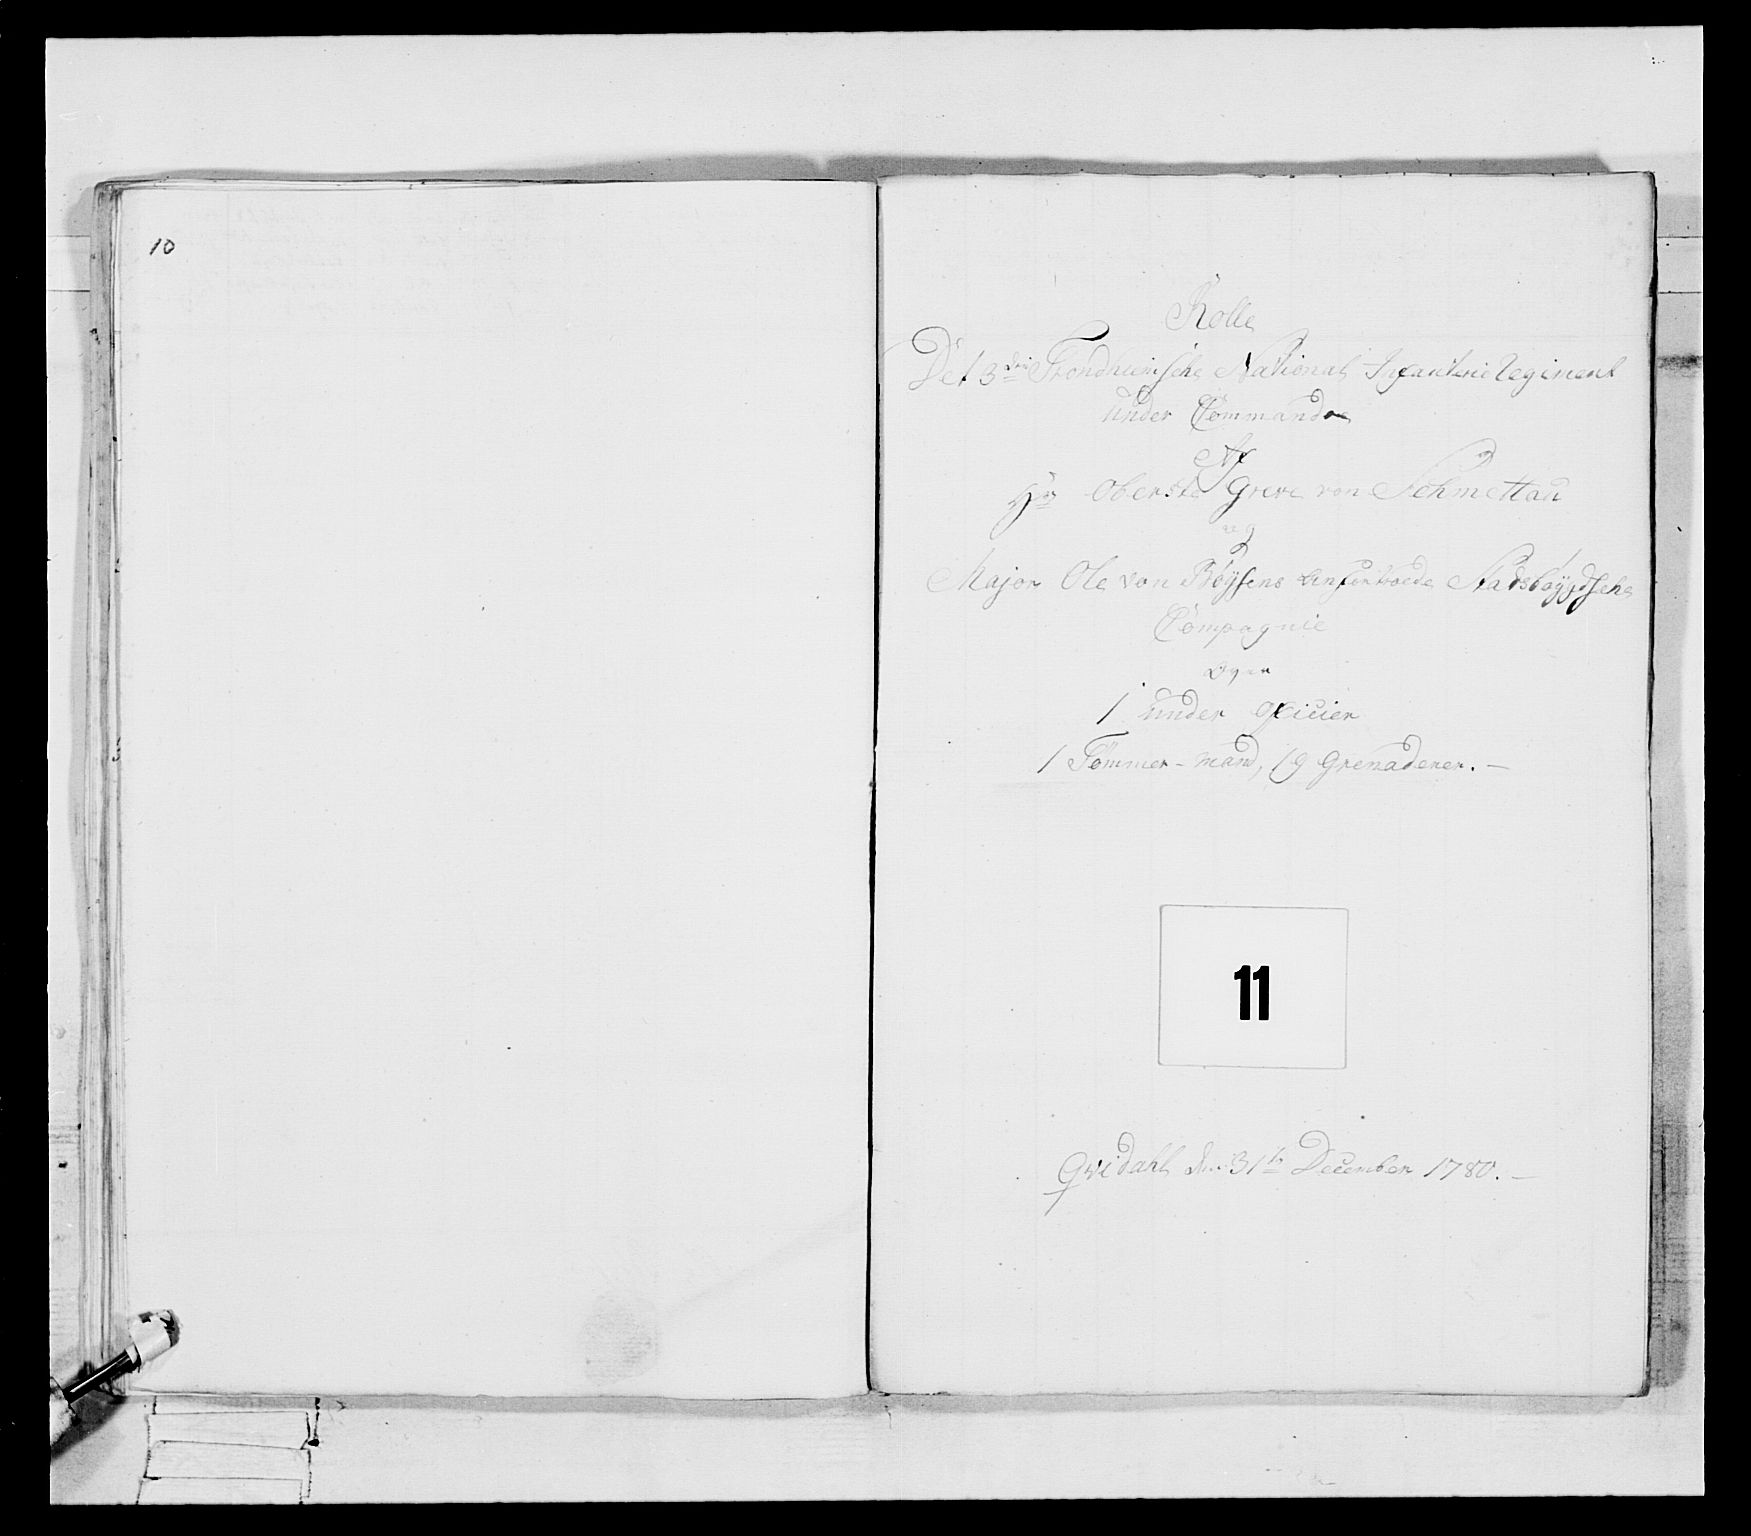 10
Rolle
Det 3die Trondhiemsche National Infanterie Regiment
under Commando
Af
Hr Oberste Greve von Schmettau
og
Major Ole von Bøysens anfortroede Stadsbøygdsche
Compagnie
over
1 under Officier
1 Tømmer-mand, 19 Grenaderer.-
11
Qvidahl den 31te December 1780.-